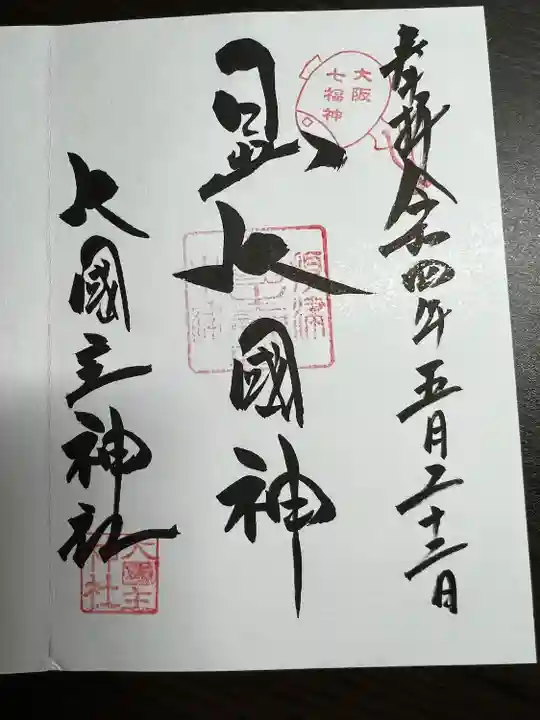 奉拝 令和四年五月二十三日
大阪
七福神
日出大國神
大國主神社
大國主
神社